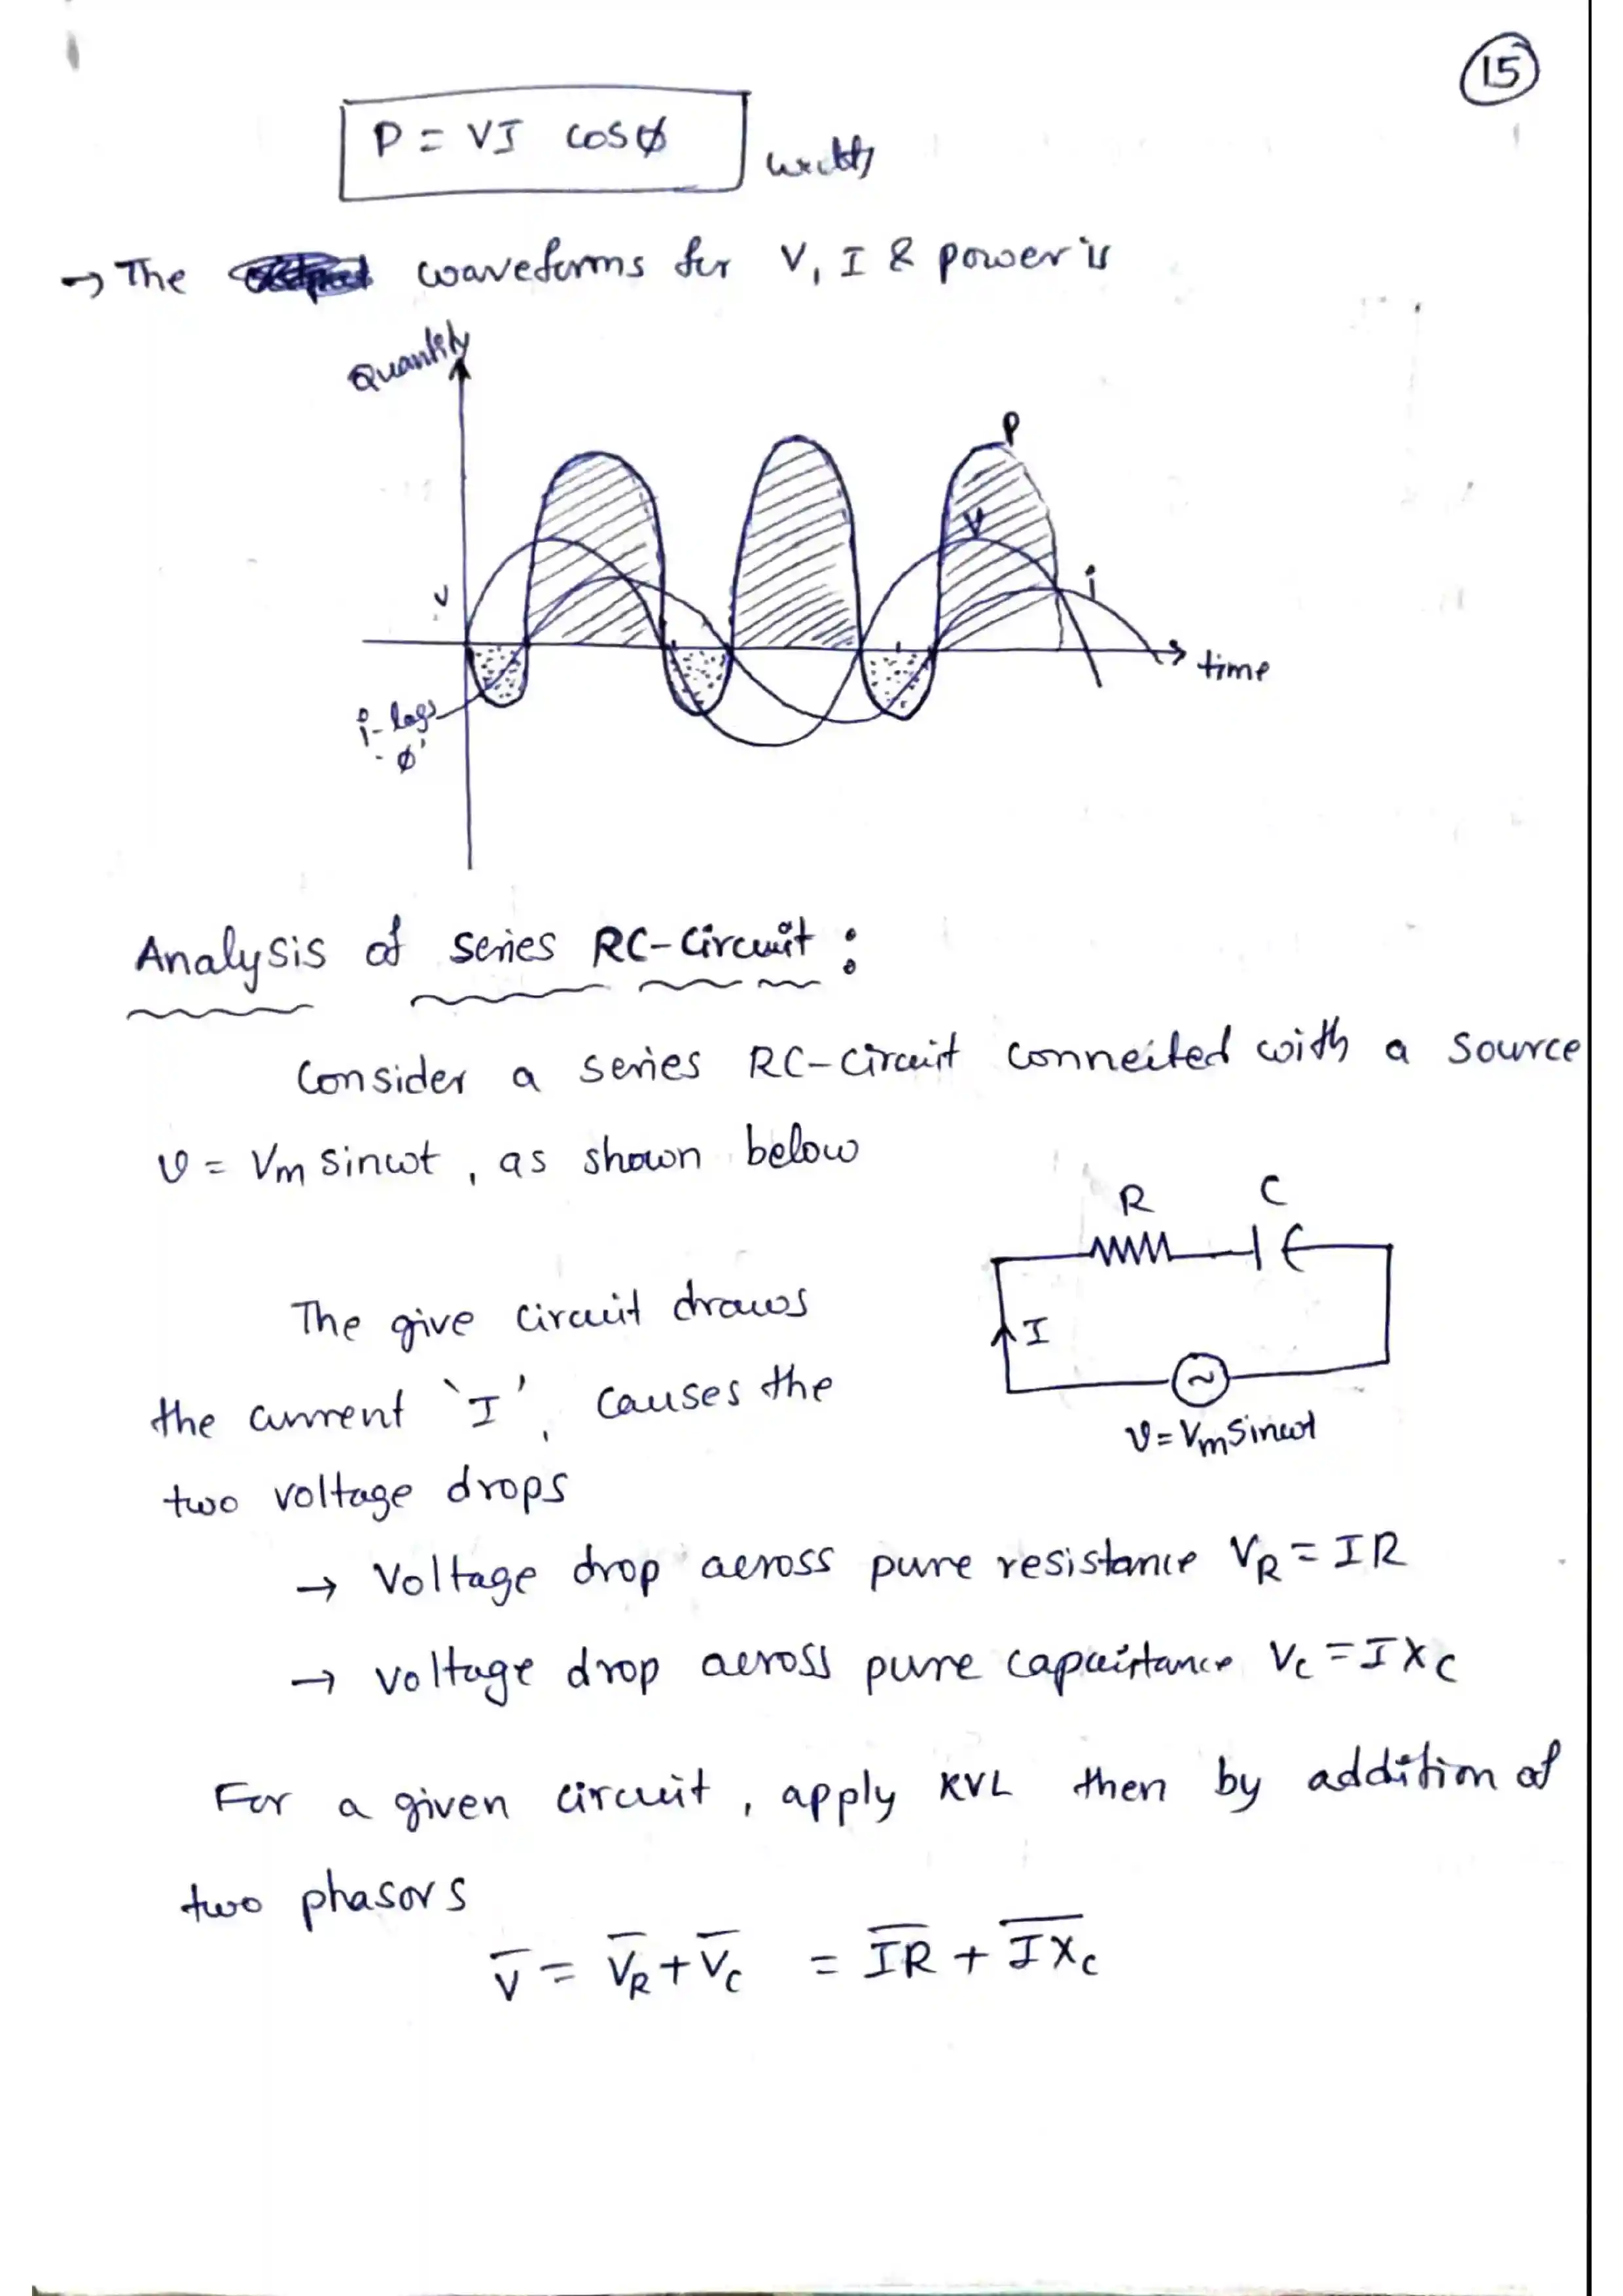 15
P = VI cosφ watts
→ The waveforms for V, I & power is
Quantity
P
V
i
v
time
i-lags
φ'
Analysis of series RC-Circuit :
Consider a series RC-Circuit connected with a source
v = Vm sinωt , as shown below
R C
The give circuit draws
I
the current 'I', causes the
v = Vm Sinωt
two voltage drops
→ Voltage drop across pure resistance VR = IR
→ voltage drop across pure capacitance Vc = IXc
For a given circuit , apply KVL then by addition of
two phasors
V̅ = V̅R + V̅c = I̅R̅ + I̅X̅c̅